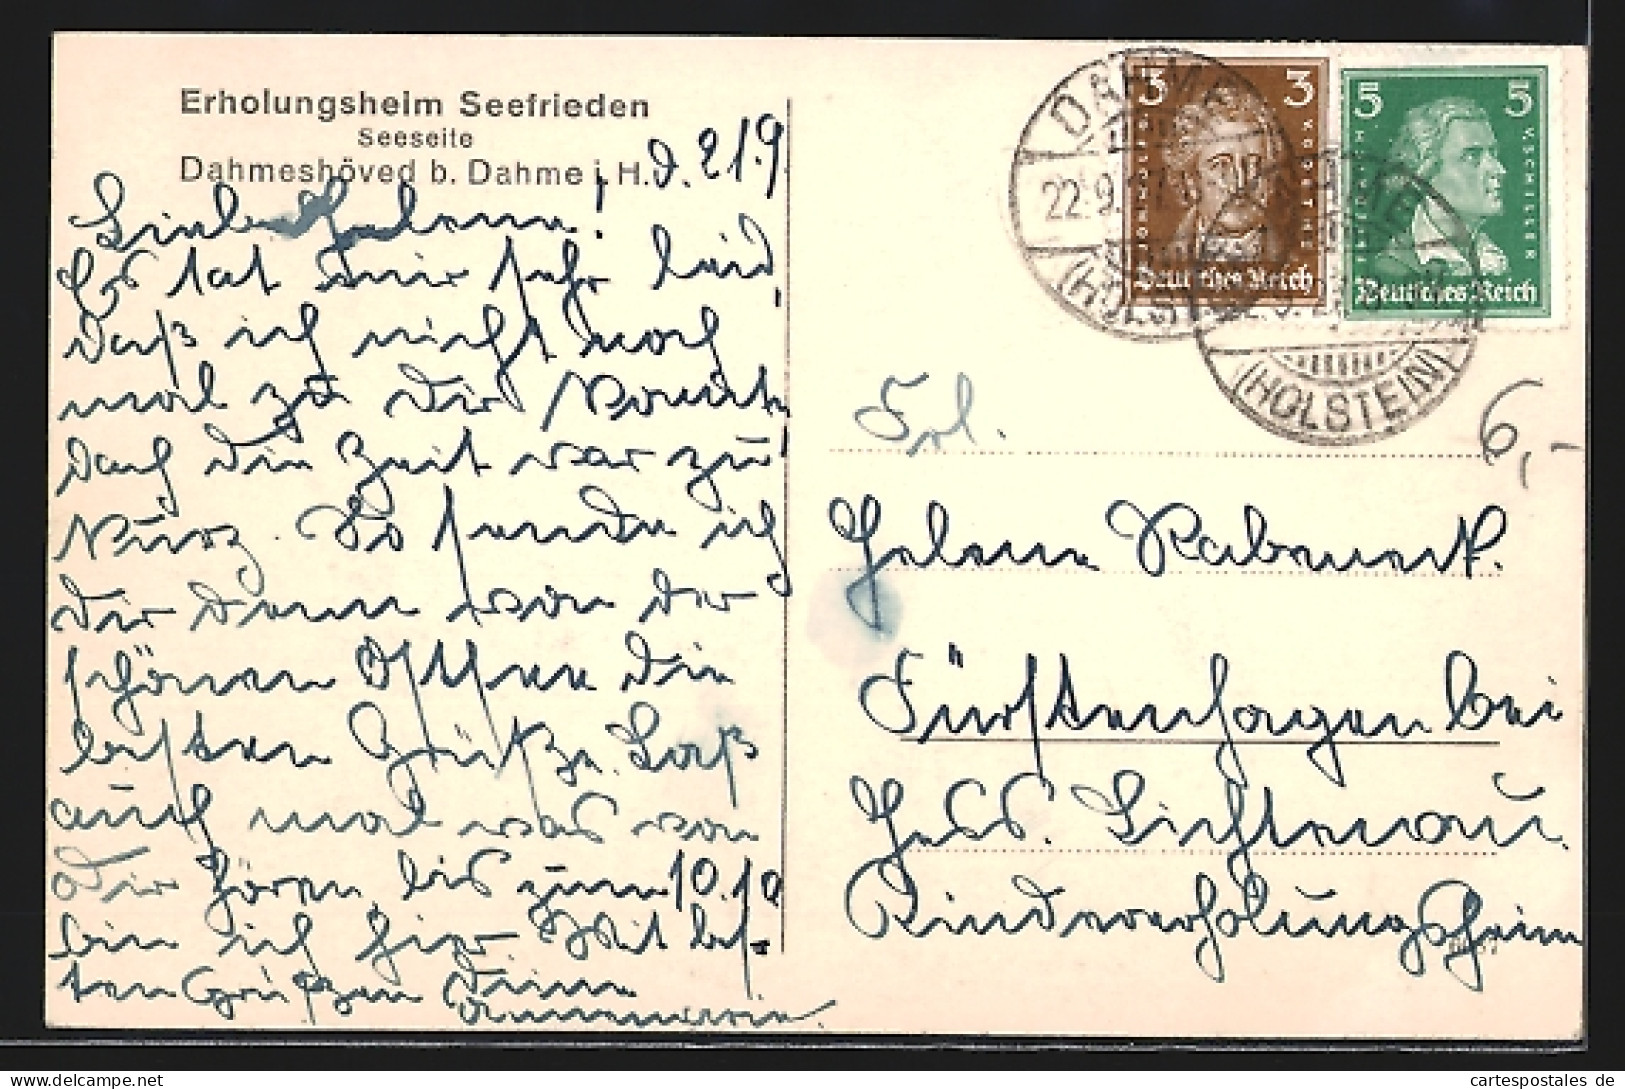 Erholungsheim Seefrieden
Seeseite
Dahmeshöved b. Dahme i. H. d. 21.9
Liebe Helene!
Es tat mir sehr leid,
daß ich nicht noch
mal zu dir konnte,
doch die Zeit war zu
kurz. So sende ich
dir denn von der
schönen Ostsee die
besten Grüße. Laß
auch mal was von
dir hören, bis zum 10.10
bin ich hier. Mit bes-
ten Grüßen Deine
Annemarie.
3 3
Deutsches Reich
5 5
F. v. SCHILLER
Deutsches Reich
DAHME
22.9.
(HOLSTEIN)
DAHME
(HOLSTEIN)
6,-
Frl.
Helene
Fürstenhagen bei
Hess. Lichtenau.
Kindererholungsheim
cartespostales de